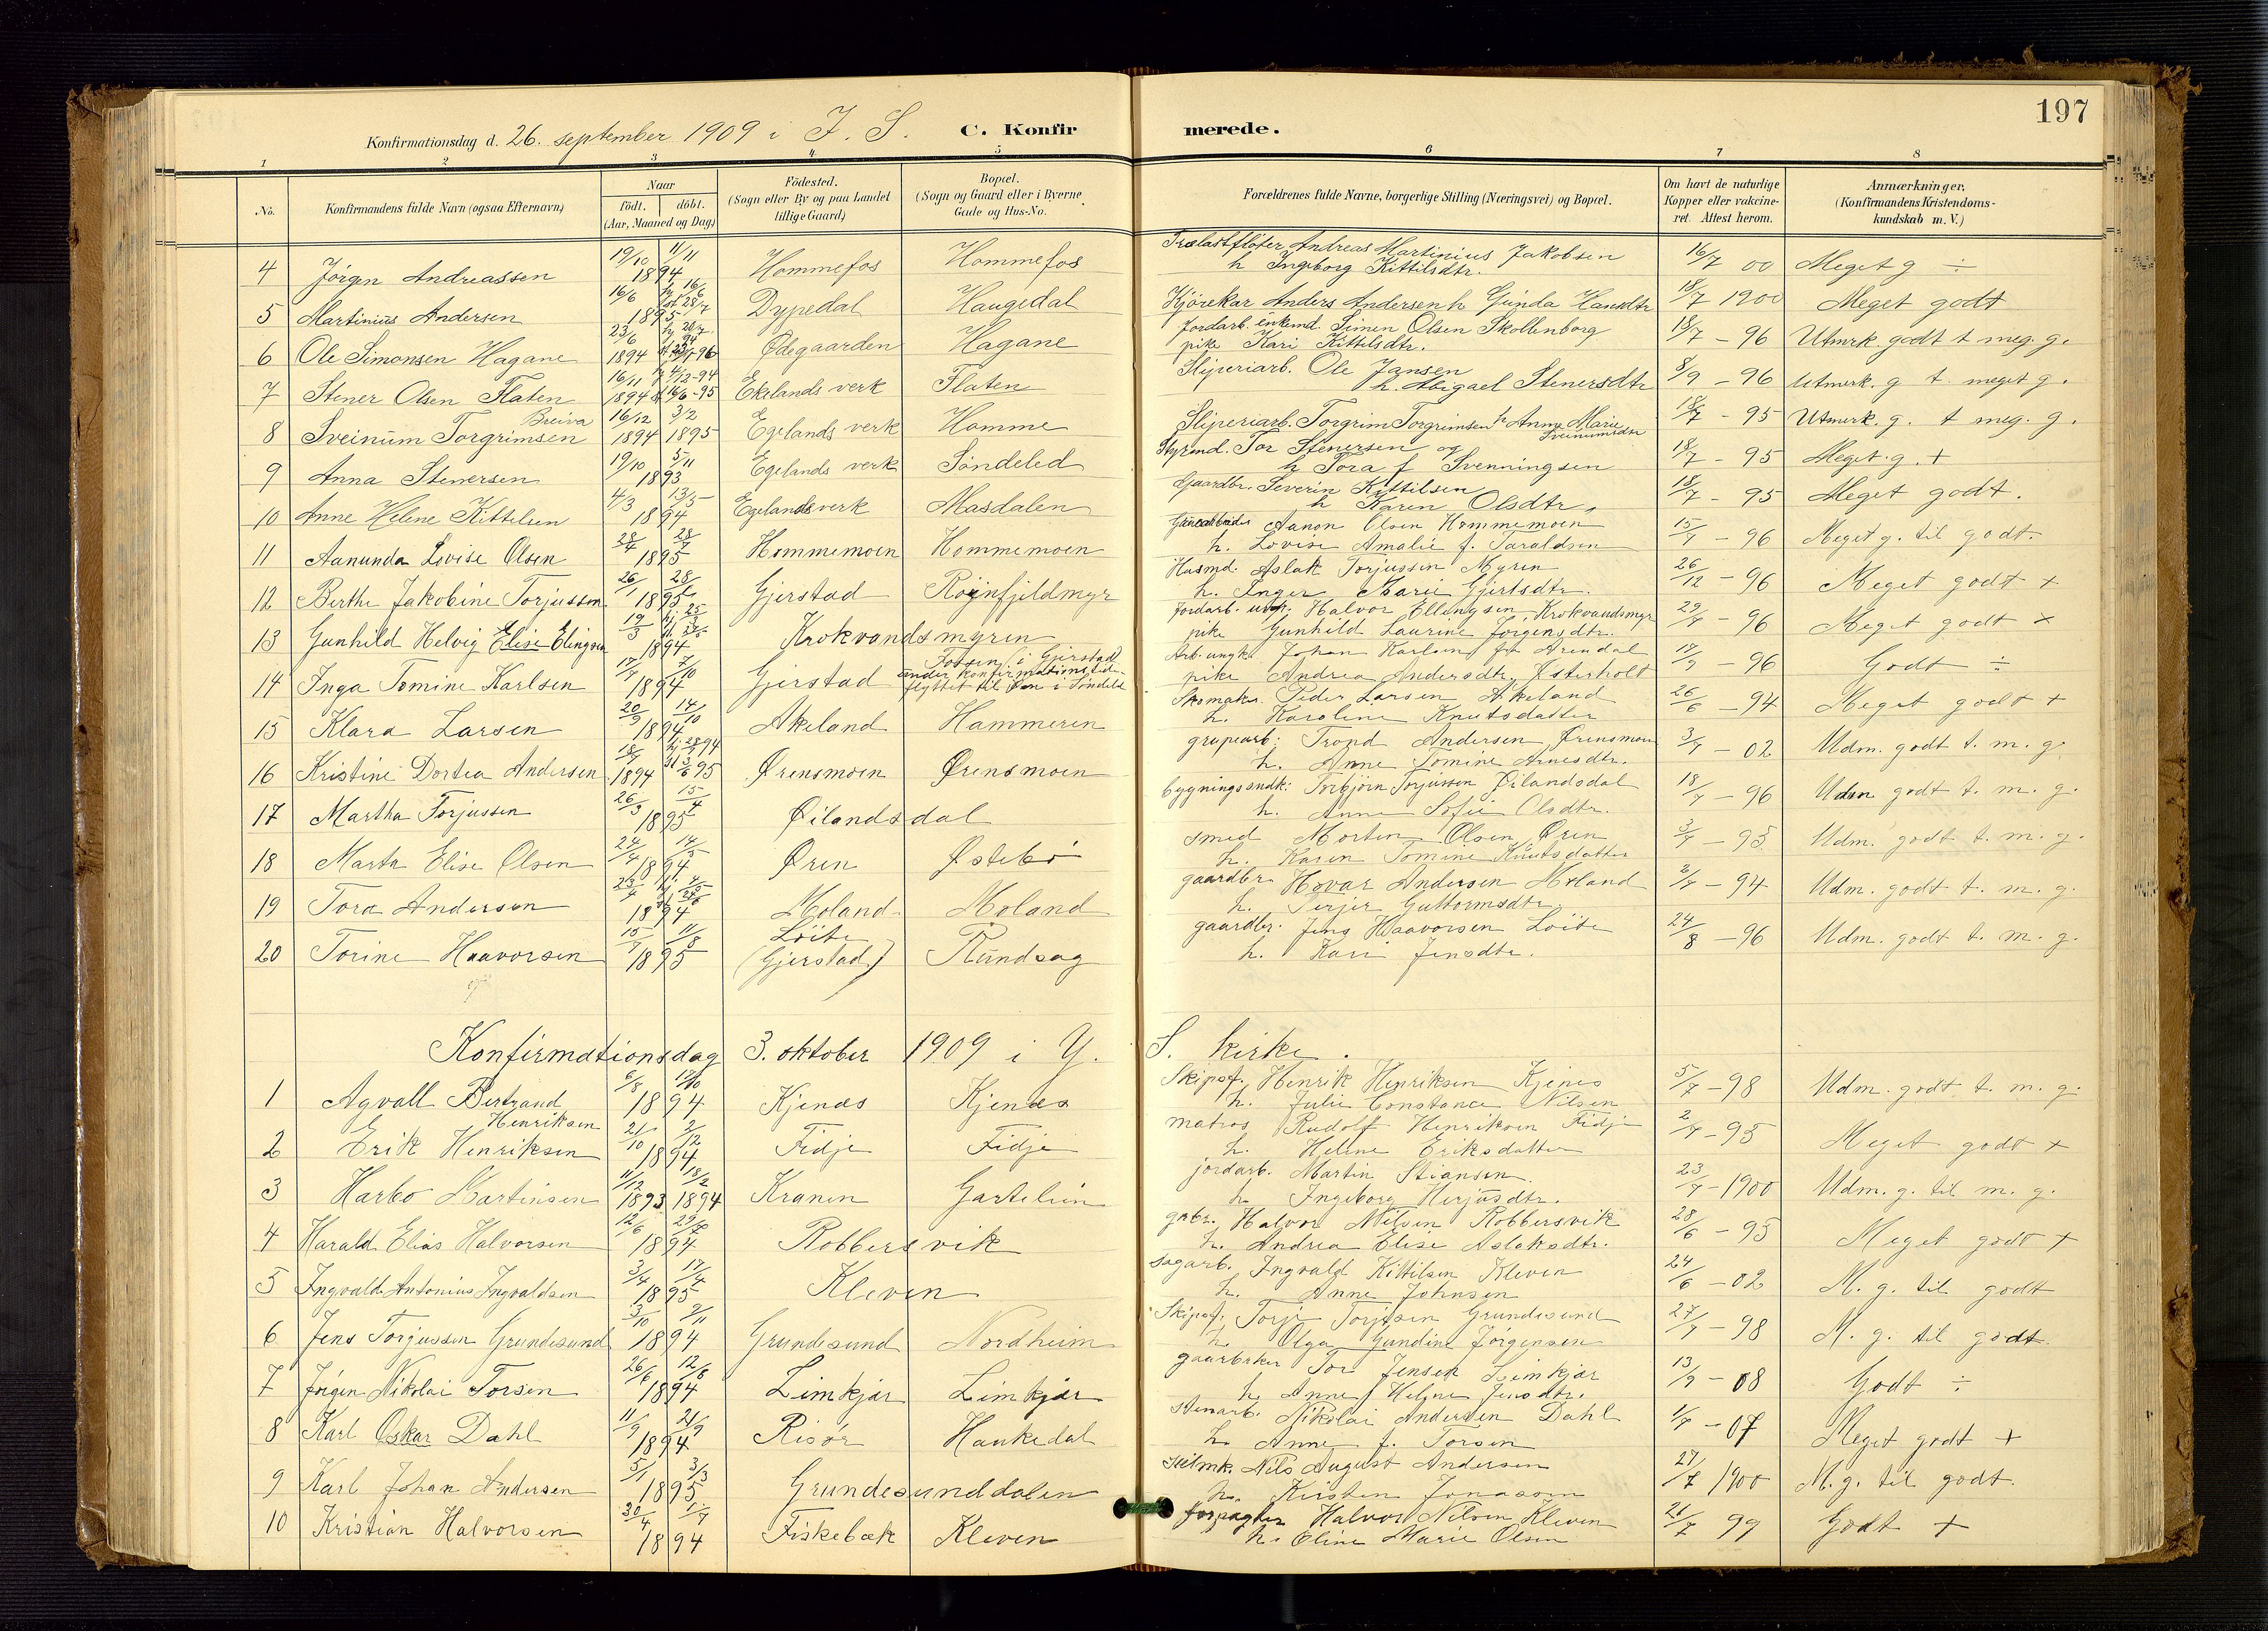 197
Konfirmationsdag d. 26. september 1909 i I. S. C. Konfirmerede.
1 2 3 4 5 6 7 8
No. Konfirmandens fulde Navn (ogsaa Efternavn) Naar födt. döbt. (Aar, Maaned og Dag) Födested. (Sogn eller By og paa Landet tillige Gaard) Bopæl. (Sogn og Gaard eller i Byerne Gade og Hus-No. Forældrenes fulde Navne, borgerlige Stilling (Næringsvei) og Bopæl. Om havt de naturlige Kopper eller vakcineret. Attest herom. Anmærkninger, (Konfirmandens Kristendomskundskab m. V.)
4 Jörgen Andreassen 19/10 11/11 1894 Hommefos Hommefos Trælastflöter Andreas Martinius Jakobsen h Ingeborg Kittilsdtr. 16/7 00 Meget g ÷
5 Martinius Andersen 16/6 1895 Dypedal Haugedal Kjörekar Anders Andersen h Gunda Hansdtr 18/7 1900 Meget godt
6 Ole Simonsen Hagane 23/6 1894 Ødegaarden Hagane Jordarb. enkemd. Simen Olsen Skollenborg pike Kari Kittilsdtr. 18/7 - 96 Utmrk. godt t meg. g.
7 Stener Olsen Flaten 16/11 1894 4/12-94 16/6-95 Ekelands verk Flaten Sliperiarb. Ole Jansen h. Abigael Stenersdtr 8/9 - 96 Utmerk. g t. meget g.
8 Sveinum Torgrimsen Breiva 16/12 1894 3/2 1895 Egelands verk Homme Sliperiarb. Torgrim Torgrimsen h Anne Marie Sveinumsdtr 18/7 - 95 Utmerk. g. t meg. g.
9 Anna Stenersen 19/10 5/11 1893 Egelands verk Söndeled Styrmd. Tor Stenersen og h Tora f Svenningsen 18/7 - 95 Meget g. +
10 Anne Helene Kittelsen 4/3 13/5 1894 Egelandsverk Masdalen Gaardbr. Severin Kittilsen h Karen Olsdtr. 18/7 - 95 Meget godt.
11 Aanunda Lovise Olsen 28/4 28/7 1895 Hommemoen Hommemoen Aanon Olsen Hommemoen h. Lovise Amalie f. Taraldsen 15/7 - 96 Meget g. til godt.
12 Berthe Jakobine Torjussen 26/1 1895 Gjerstad Röinfjeldmyr Husmd. Aslak Torjussen Myren h. Inger Marie Gjertsdtr. 26/12 - 96 Meget godt +
13 Gunhild Helvig Elise Elingsen 19/3 1894 Krokvandsmyren Jordarb. Halvor Ellingsen, Krokvandsmyr pike Gunhild Laurine Jörgensdtr. 29/7 - 96 Meget godt ×
14 Inga Tomine Karlsen 17/7 7/10 1894 Gjerstad Fossen i Gjerstad under konfirmationstiden flyttet til Øen i Söndeled Arb. ungk. Johan Karlsen fr Arendal pike Andrea Andersdtr, Østerholt 17/9 - 96 Godt ÷
15 Klara Larsen 20/9 14/10 1894 Akeland Hammeren Skomaker Peder Larsen Akeland h. Karoline Knutsdatter 26/6 - 94 Meget godt +
16 Kristine Dortea Andersen 18/7 1894 Ørensmoen Ørensmoen grupearb: Trond Andersen Ørensmoen h. Anne Tomine Arnesdtr. 3/7 - 02 Udm. godt t. m. g.
17 Martha Torjussen 26/3 15/4 1895 Øilandsdal bygningssndk: Torbjörn Torjussen Øilandsdal h. Anne Sofie Olsdtr. 18/7 - 96 Udm godt t. m. g.
18 Marta Elise Olsen 24/4 14/5 1894 Øren Østebö smed Morten Olsen, Øren h. Karen Tomine Knutsdatter 3/7 - 95 Udm. godt t. m. g.
19 Tora Andersen 23/4 1894 Moland Moland gaardbr. Hovar Andersen Moland h. Terjer Guttormsdtr. 3/7 - 94 Udm. godt t. m. g.
20 Torine Haavorsen 15/7 11/8 1895 Löite (Gjerstad) Rundsag gaardbr. Jens Haavorsen Löite h. Kari Jensdtr. 24/8 - 96 Udm. godt t. m. g.
Konfirmationsdag 3. oktober 1909 i Y. S. kirke.
1 Agvall Bertrand Henriksen 6/8 1894 Kjenæs Kjenæs Skipsf. Henrik Henriksen Kjenes h. Julie Constance Nilsen 5/7 - 98 Udm. godt t. m. g.
2 Erik Henriksen 21/10 2/12 1894 Fidje Fidje matros Rudolf Henriksen Fidje h. Helene Eriksdatter 2/7 - 95 Meget godt +
3 Harbo Martinsen 11/12 1893 18/2 1894 Kranen Gartelien jordarb. Martin Stiansen. h. Ingeborg Herjusdtr. 23/7 - 1900 Udm. g. til m. g.
4 Harald Elias Halvorsen 12/6 1894 Robbersvik gabr. Halvor Nilsen Robbersvik h. Andrea Elise Aslaksdtr. 28/6 - 95 Meget godt +
5 Ingvald Antonius Ingvaldsen 3/4 17/4 1895 Kleven sagarb. Ingvald Kittilsen Kleven h. Anne Johnsen 24/6 - 02 M. g. til godt
6 Jens Torjussen Grundesund 3/10 1894 Grundesund Nordheim Skipsf. Torje Torjesen Grundesund h. Olga Gundine Jörgensen 27/7 - 98 M. g. til godt.
7 Jörgen Nikolai Torsen 26/6 12/8 1894 Limkjær Limkjær gaarbruker Tor Jensen Limkjær h. Anne Helene Jensdtr. 13/9 - 08 Godt ÷
8 Karl Oskar Dahl 11/9 21/9 1894 Risör Haukedal stenarb. Nikolai Andersen Dahl h. Anne f. Torsen 1/7 - 07 Meget godt +
9 Karl Johan Andersen 5/1 3/3 1895 Grundesunddalen Seilmk. Nils August Andersen h. Kirsten Jonassen 27/7 1900 M. g. til godt.
10 Kristian Halvorsen 30/4 1/7 1894 Fiskebæk Kleven forpagter Halvor Nilsen Kleven h. Eline Marie Olsen 21/7 99 Godt +